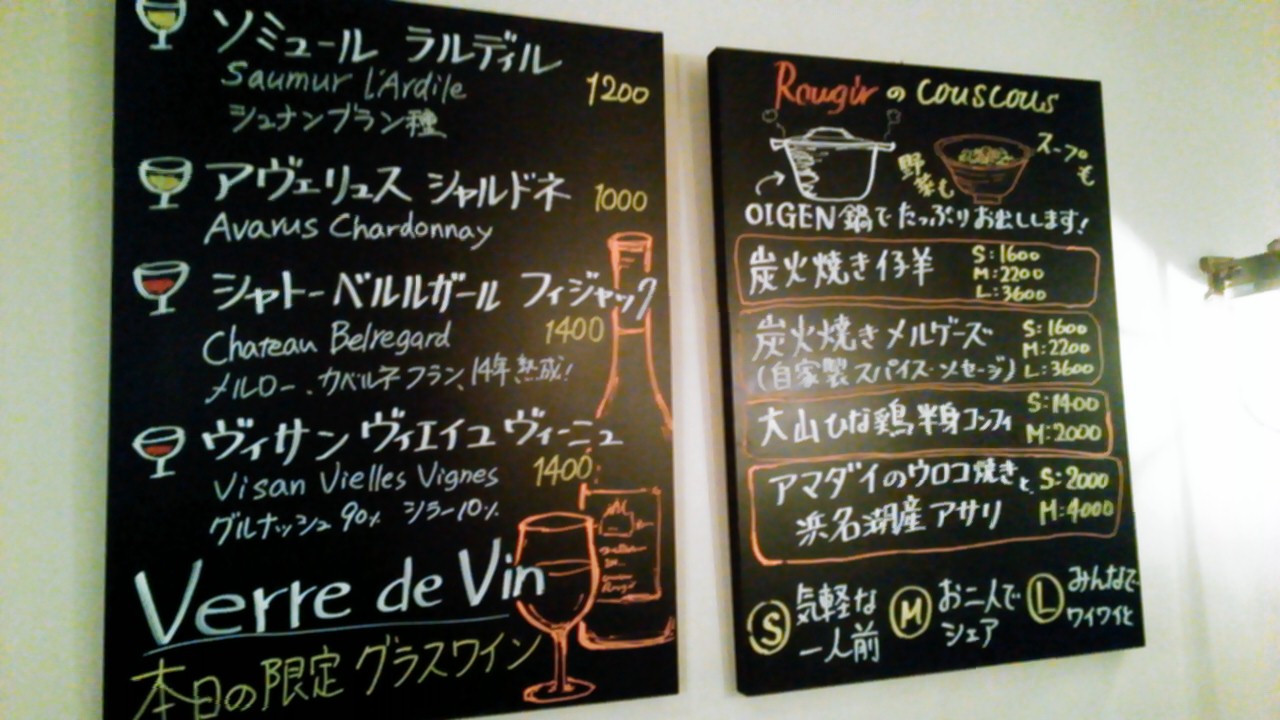 ソミュール ラルディル
Saumur l'Ardile
1200
シュナンブラン種
アヴェリュス シャルドネ
1000
Avarus Chardonnay
シャトーベルルガール フィジャック
Chateau Belregard
1400
メルロー、カベルネフラン、14年熟成!
ヴィサン ヴィエイユ ヴィーニュ
Visan Vielles Vignes
1400
グルナッシュ90% シラー10%
Verre de Vin
本日の限定グラスワイン
Rougirのcouscous
野菜も
スープも
OIGEN鍋でたっぷりお出しします!
炭火焼き仔羊
S:1600
M:2200
L:3600
炭火焼きメルゲーズ
(自家製スパイス・ソセージ)
S:1600
M:2200
L:3600
大山ひな鶏半身コンフィ
S:1400
M:2000
アマダイのウロコ焼きと、
浜名湖産アサリ
S:2000
M:4000
S 気軽な
一人前
M お二人で
シェア
L みんなで
ワイワイと